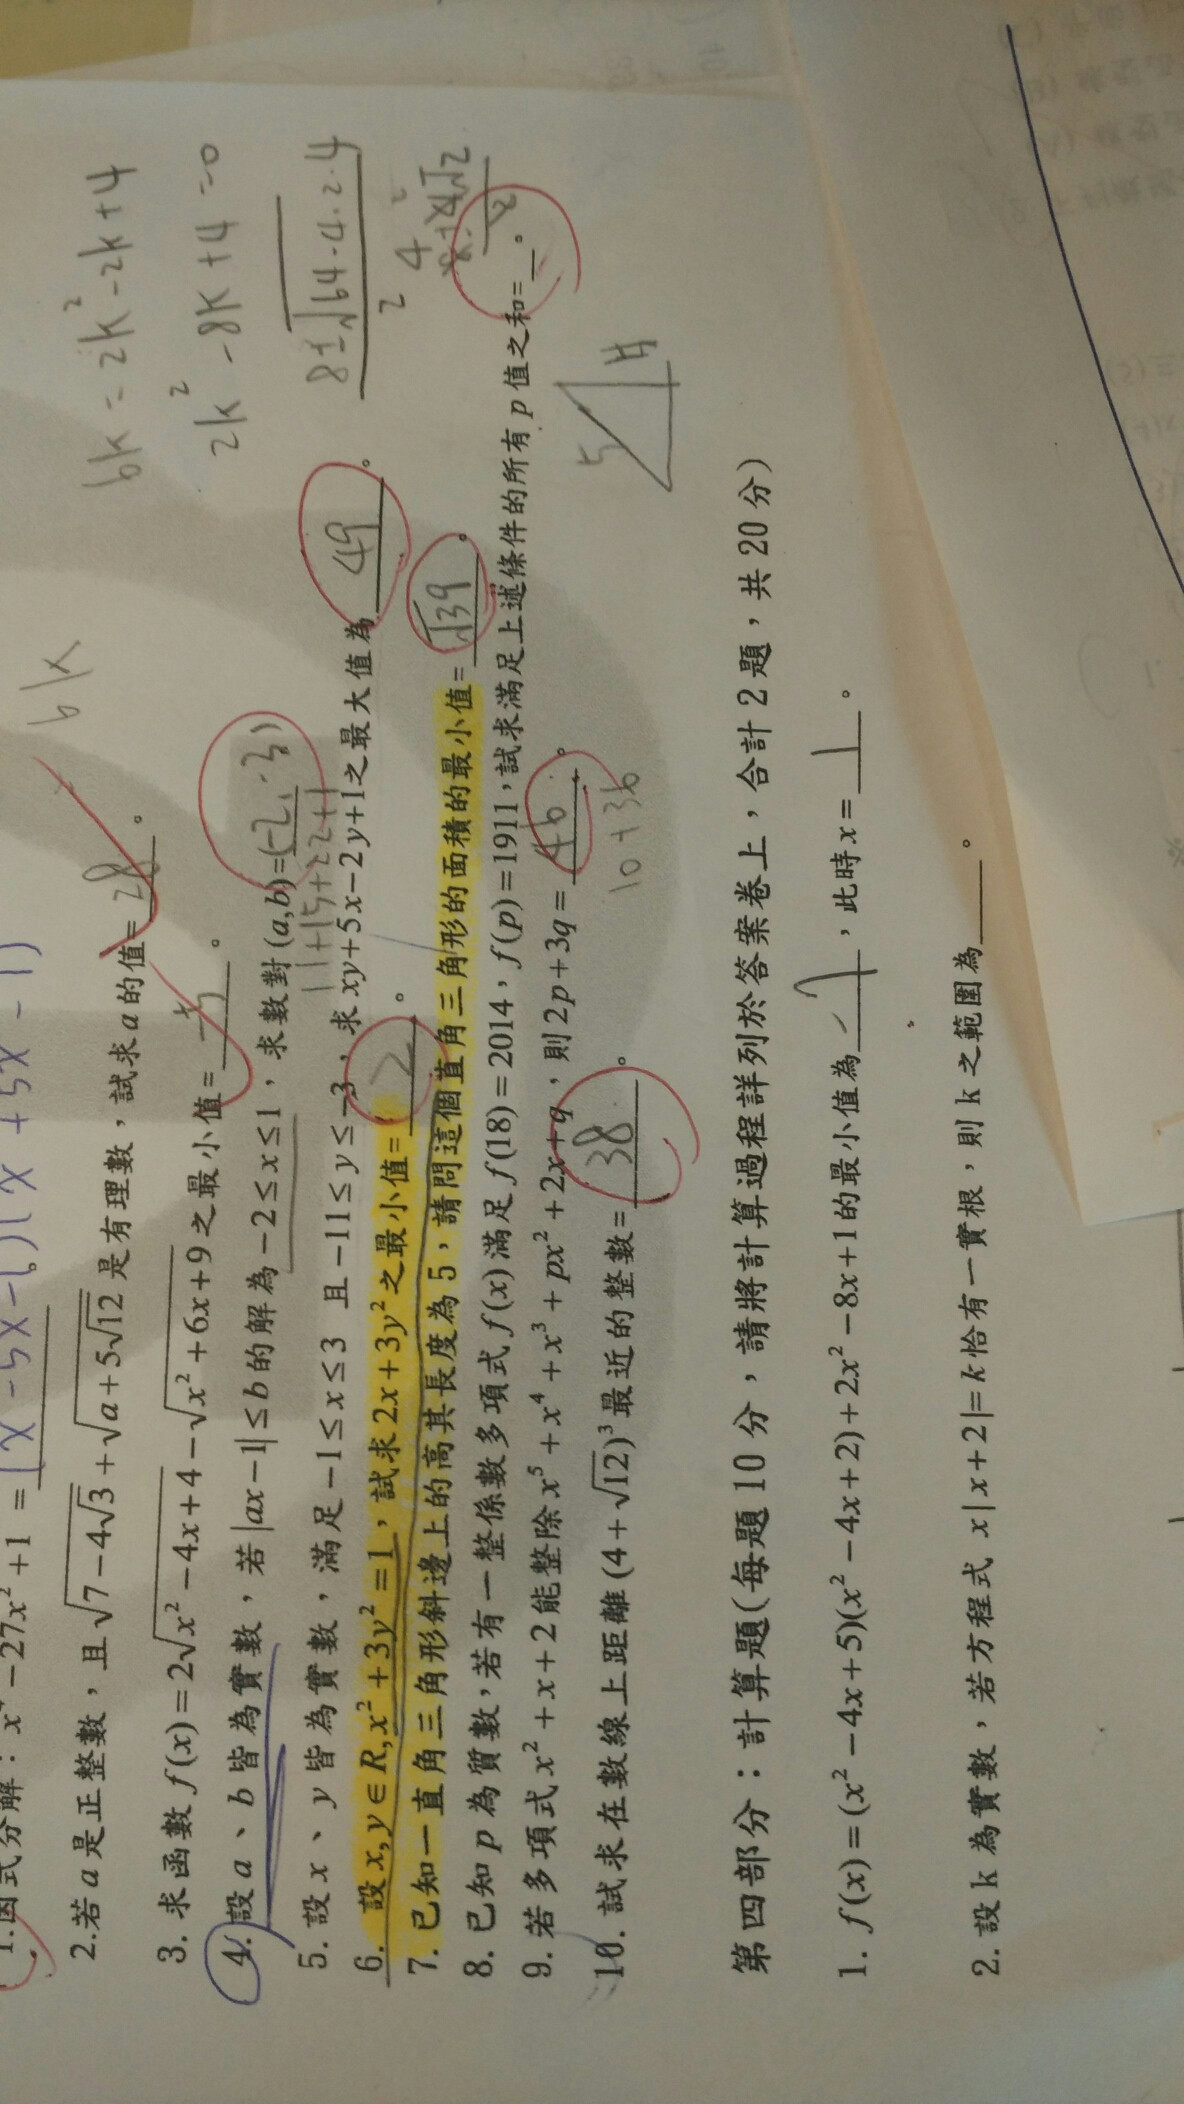 6k = 2k² - 2k + 4
2k² - 8k + 4 = 0
8±√64-4·2·4
2
6k
1.因式分解：x⁴-27x²+1 = (x²-5x-1)(x²+5x-1)
2.若a是正整數，且√(7-4√3)+√(a+5√12)是有理數，試求a的值=28。
3. 求函數f(x)=2√(x²-4x+4)-√(x²+6x+9)之最小值=-5。
4. 設a、b皆為實數，若|ax-1|≤b的解為-2≤x≤1，求數對(a,b)=(-2,3)
11+15+22+1
5. 設x、y皆為實數，滿足-1≤x≤3 且-11≤y≤-3，求xy+5x-2y+1之最大值為49。
6. 設x,y∈R,x²+3y²=1，試求2x+3y²之最小值=-2。
7. 已知一直角三角形斜邊上的高其長度為5，請問這個直角三角形的面積的最小值=√39。
8. 已知p為質數,若有一整係數多項式f(x)滿足f(18)=2014，f(p)=1911，試求滿足上述條件的所有p值之和=。
9. 若多項式x²+x+2能整除x⁵+x⁴+x³+px²+2x+q，則2p+3q=46。
10+36
10. 試求在數線上距離(4+√12)³最近的整數=38。
5
H
第四部分：計算題(每題10分，請將計算過程詳列於答案卷上，合計2題，共20分)
1. f(x)=(x²-4x+5)(x²-4x+2)+2x²-8x+1的最小值為，此時x=。
2. 設k為實數，若方程式 x|x+2|=k恰有一實根，則k之範圍為。